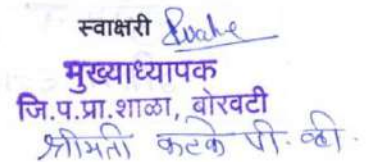 स्वाक्षरी
मुख्याध्यापक
जि.प.प्रा.शाळा, बोरवटी
श्रीमती कटके पी. व्ही.